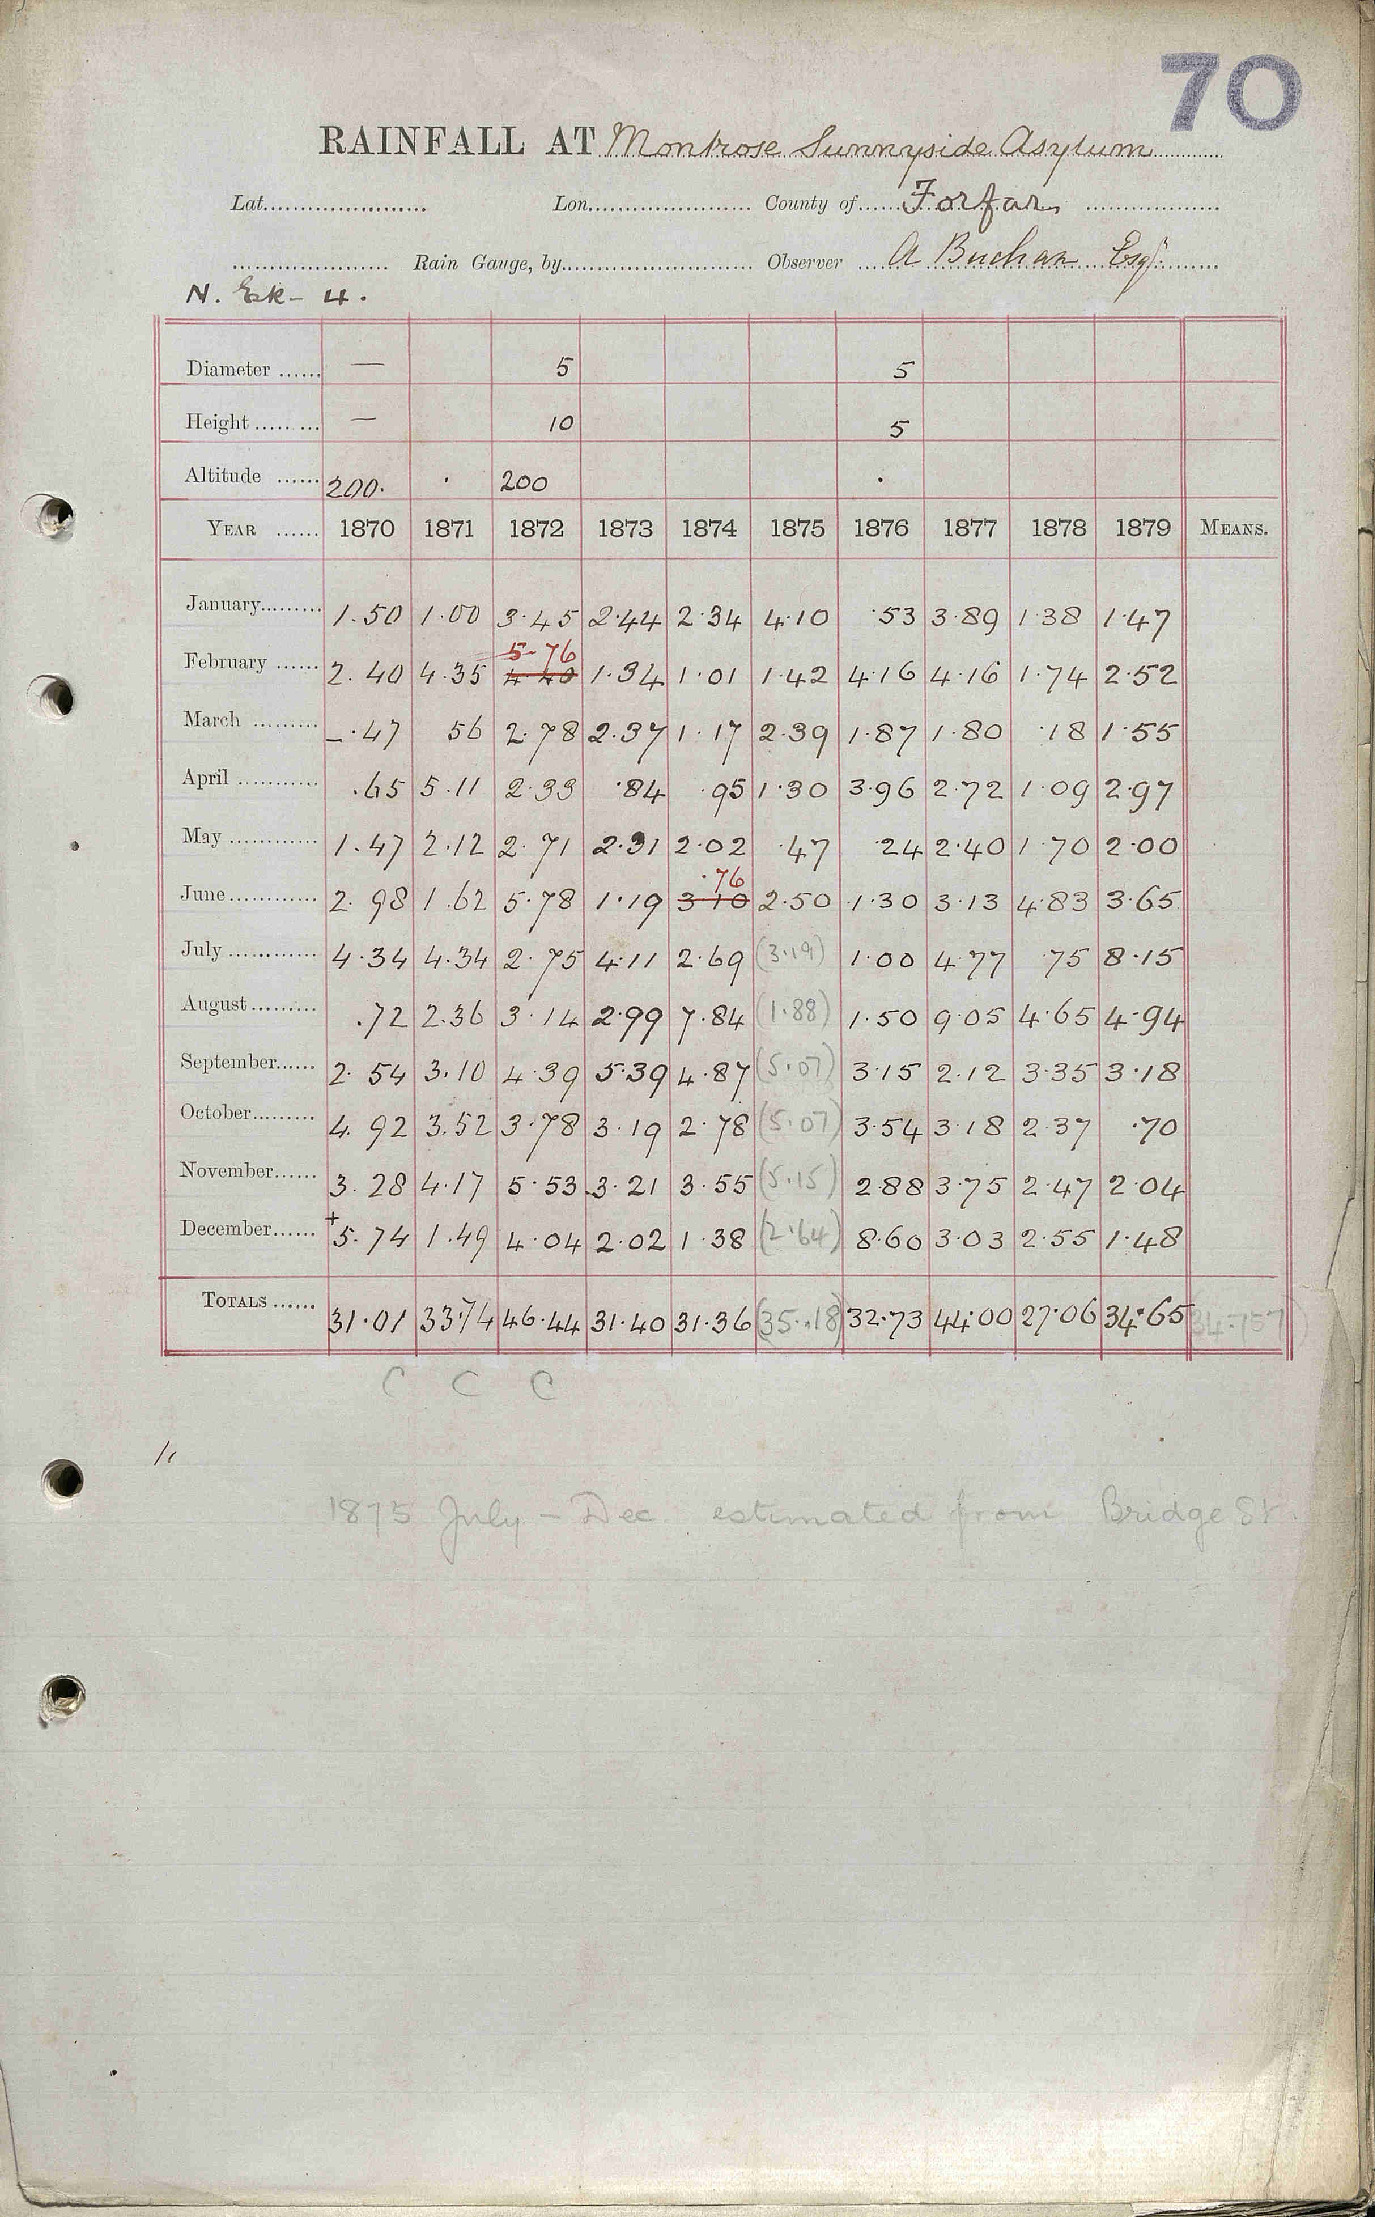 70
RAINFALL AT Montrose Sunnyside Asylum
Lat. Lon. County of Forfar
Rain Gauge, by Observer A Buchan Esqr.
N. Esk - 4.
Diameter — 5 5
Height — 10 5
Altitude 200. · 200 ·
YEAR 1870 1871 1872 1873 1874 1875 1876 1877 1878 1879 MEANS.
January 1.50 1.00 3.45 2.44 2.34 4.10 .53 3.89 1.38 1.47
5.76
February 2.40 4.35 4.40 1.34 1.01 1.42 4.16 4.16 1.74 2.52
March —.47 56 2.78 2.37 1.17 2.39 1.87 1.80 .18 1.55
April .65 5.11 2.33 .84 .95 1.30 3.96 2.72 1.09 2.97
May 1.47 2.12 2.71 2.31 2.02 .47 .24 2.40 1.70 2.00
.76
June 2.98 1.62 5.78 1.19 3.10 2.50 1.30 3.13 4.83 3.65
July 4.34 4.34 2.75 4.11 2.69 (3.19) 1.00 4.77 .75 8.15
August .72 2.36 3.14 2.99 7.84 (1.88) 1.50 9.05 4.65 4.94
September 2.54 3.10 4.39 5.39 4.87 (5.07) 3.15 2.12 3.35 3.18
October 4.92 3.52 3.78 3.19 2.78 (5.07) 3.54 3.18 2.37 .70
November 3.28 4.17 5.53 3.21 3.55 (5.15) 2.88 3.75 2.47 2.04
December +5.74 1.49 4.04 2.02 1.38 (2.64) 8.60 3.03 2.55 1.48
TOTALS 31.01 33.74 46.44 31.40 31.36 (35.18) 32.73 44.00 27.06 34.65 (34.757)
C C C
1875 July - Dec. estimated from Bridge St.